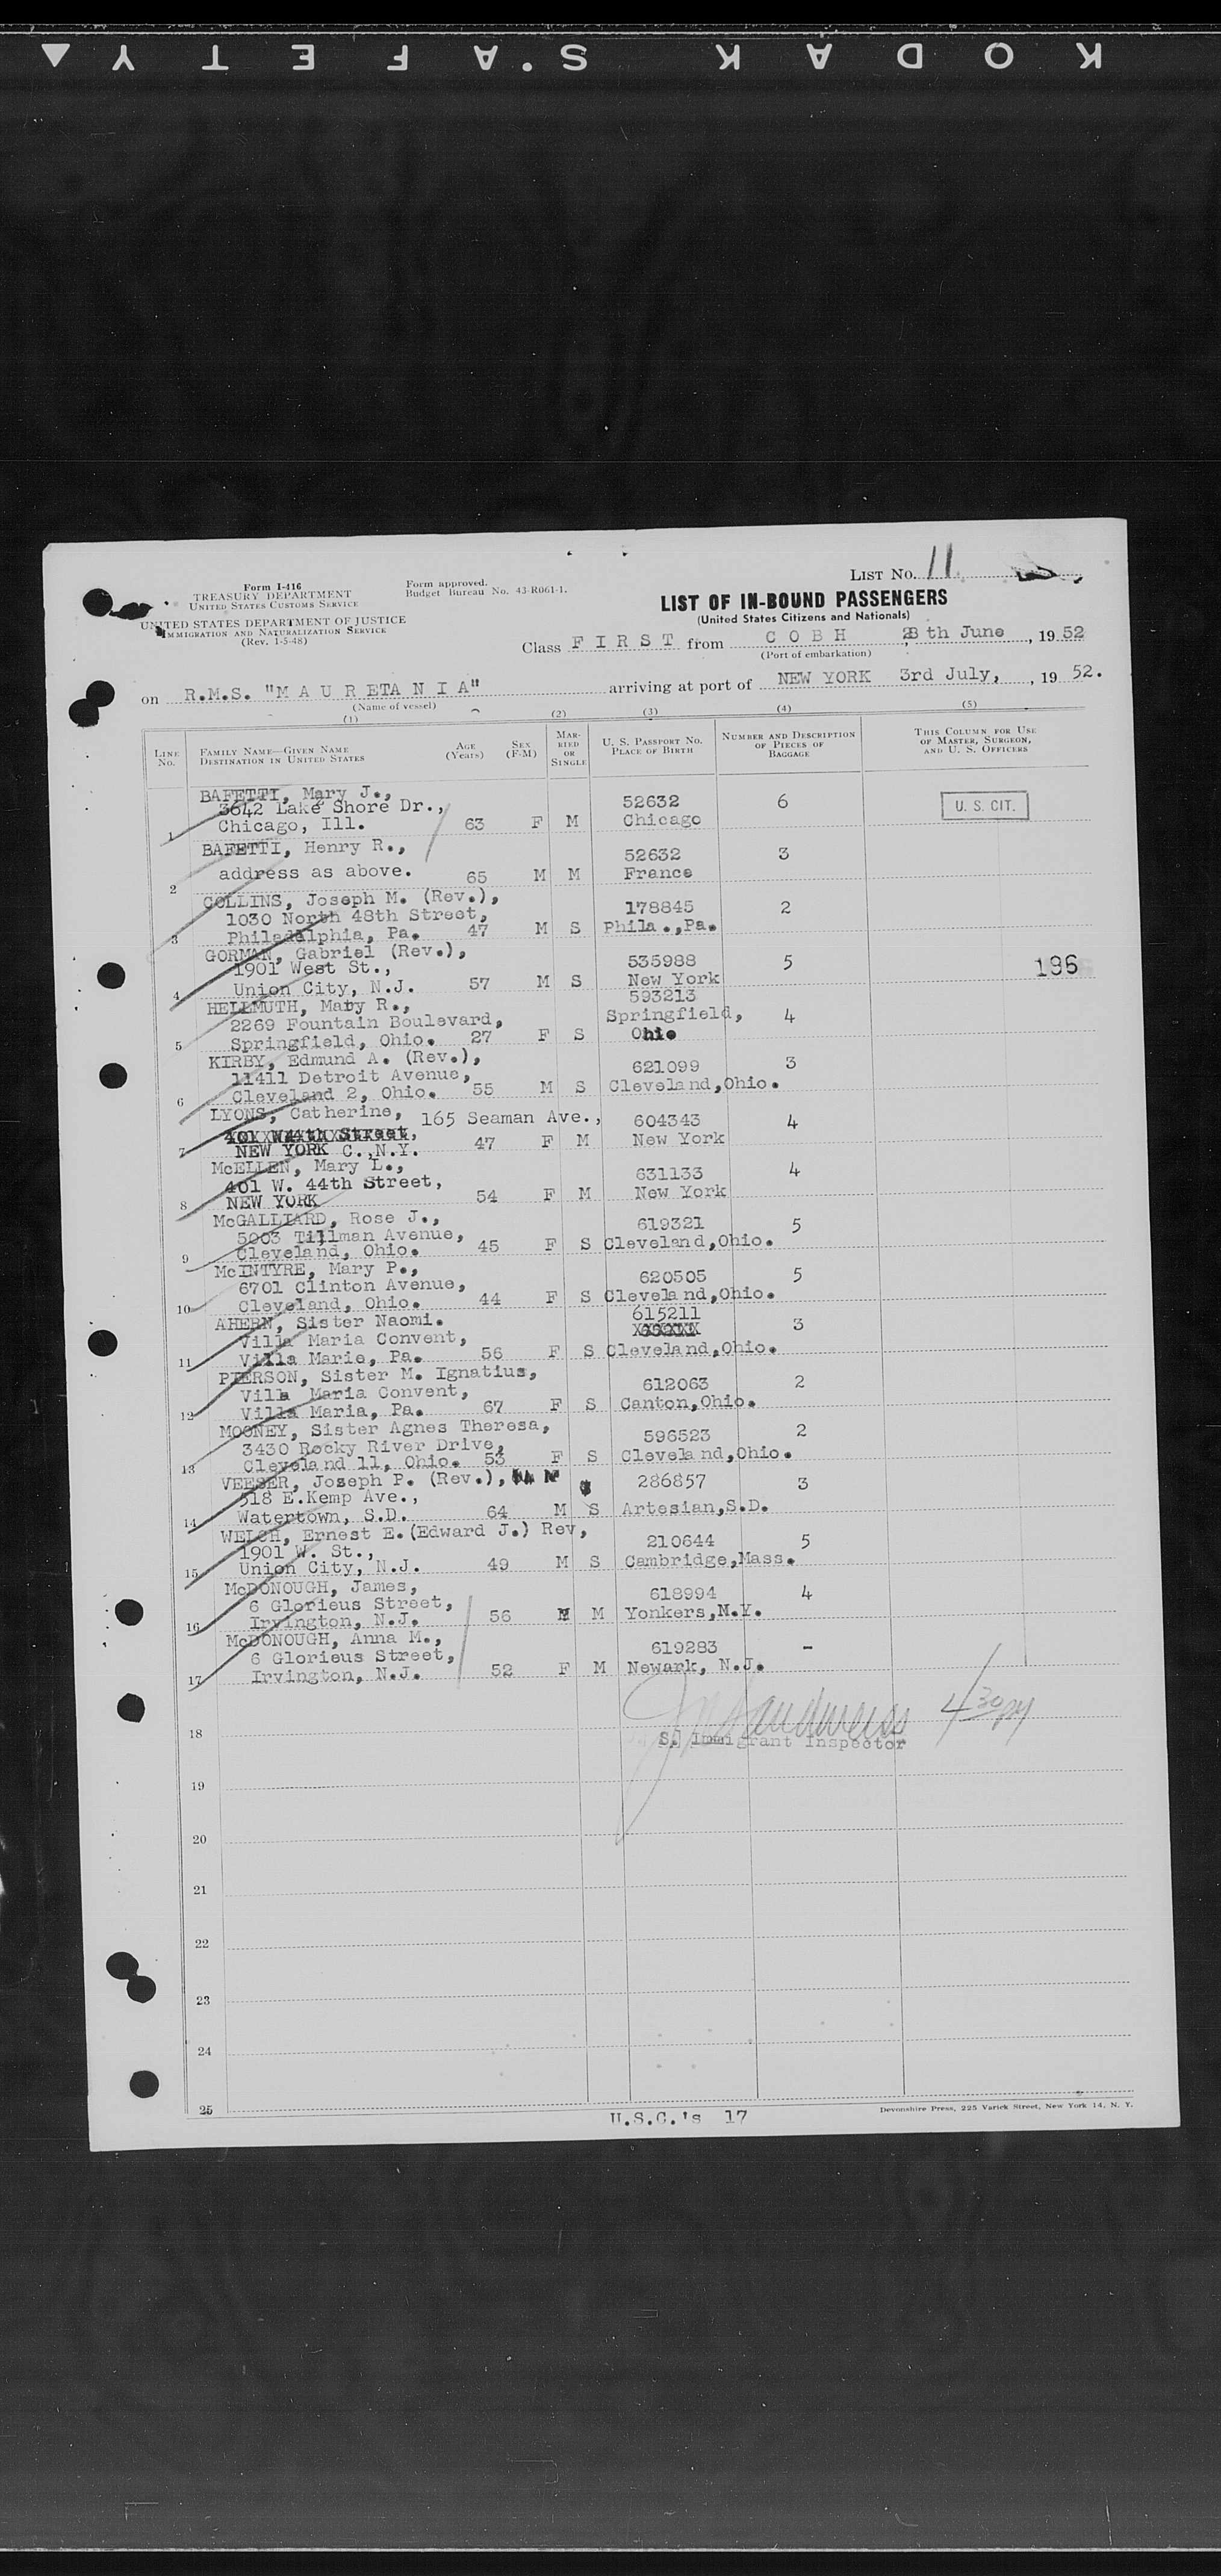 KODAK S.A F E T Y
LIST No. 11
Form I-416
TREASURY DEPARTMENT
UNITED STATES CUSTOMS SERVICE
UNITED STATES DEPARTMENT OF JUSTICE
IMMIGRATION AND NATURALIZATION SERVICE
(Rev. 1-5-48)
Form approved.
Budget Bureau No. 43-R061-1.
LIST OF IN-BOUND PASSENGERS
(United States Citizens and Nationals)
Class F I R S T from C O B H , 28th June , 1952
(Port of embarkation)
on R.M.S. "M A U R ETA N I A" arriving at port of NEW YORK 3rd July, , 19 52.
(Name of vessel)
(1) (2) (3) (4) (5)
LINE No.
FAMILY NAME—GIVEN NAME
DESTINATION IN UNITED STATES
AGE (Years)
SEX (F-M)
MARRIED OR SINGLE
U. S. PASSPORT NO.
PLACE OF BIRTH
NUMBER AND DESCRIPTION OF PIECES OF BAGGAGE
THIS COLUMN FOR USE OF MASTER, SURGEON, AND U. S. OFFICERS
BAFETTI, Mary J., 52632 6 U. S. CIT.
3642 Lake Shore Dr.,
1 Chicago, Ill. 63 F M Chicago
BAFETTI, Henry R., 52632 3
2 address as above. 65 M M France
COLLINS, Joseph M. (Rev.), 178845 2
1030 North 48th Street,
3 Philadelphia, Pa. 47 M S Phila.,Pa.
GORMAN, Gabriel (Rev.), 535988 5 196
1901 West St.,
4 Union City, N.J. 57 M S New York
HELLMUTH, Mary R., 593213
2269 Fountain Boulevard, Springfield, 4
5 Springfield, Ohio. 27 F S Ohio
KIRBY, Edmund A. (Rev.), 621099 3
11411 Detroit Avenue,
6 Cleveland 2, Ohio. 55 M S Cleveland,Ohio.
LYONS, Catherine, 165 Seaman Ave., 604343 4
401 W44th Street,
7 NEW YORK C.,N.Y. 47 F M New York
McELLEN, Mary L., 631133 4
401 W. 44th Street,
8 NEW YORK 54 F M New York
McGALLIARD, Rose J., 619321 5
5003 Tillman Avenue,
9 Cleveland, Ohio. 45 F S Cleveland,Ohio.
McINTYRE, Mary P., 620505 5
6701 Clinton Avenue,
10 Cleveland, Ohio. 44 F S Cleveland,Ohio.
AHERN, Sister Naomi. 615211 3
Villa Maria Convent,
11 Villa Marie, Pa. 56 F S Cleveland,Ohio.
PIERSON, Sister M. Ignatius, 612063 2
Villa Maria Convent,
12 Villa Maria, Pa. 67 F S Canton,Ohio.
MOONEY, Sister Agnes Theresa, 596523 2
3430 Rocky River Drive,
13 Cleveland 11, Ohio. 53 F S Cleveland,Ohio.
VEESER, Joseph P. (Rev.), 286857 3
518 E.Kemp Ave.,
14 Watertown, S.D. 64 M S Artesian,S.D.
WELCH, Ernest E.(Edward J.) Rev, 210644 5
1901 W. St.,
15 Union City, N.J. 49 M S Cambridge,Mass.
McDONOUGH, James, 618994 4
6 Glorieus Street,
16 Irvington, N.J. 56 M M Yonkers,N.Y.
McDONOUGH, Anna M., 619283 -
6 Glorieus Street,
17 Irvington, N.J. 52 F M Newark, N.J.
4 30 pm
18 S. Immigrant Inspector
19
20
21
22
23
24
25
U.S.C.'s 17
Devonshire Press, 225 Varick Street, New York 14, N. Y.